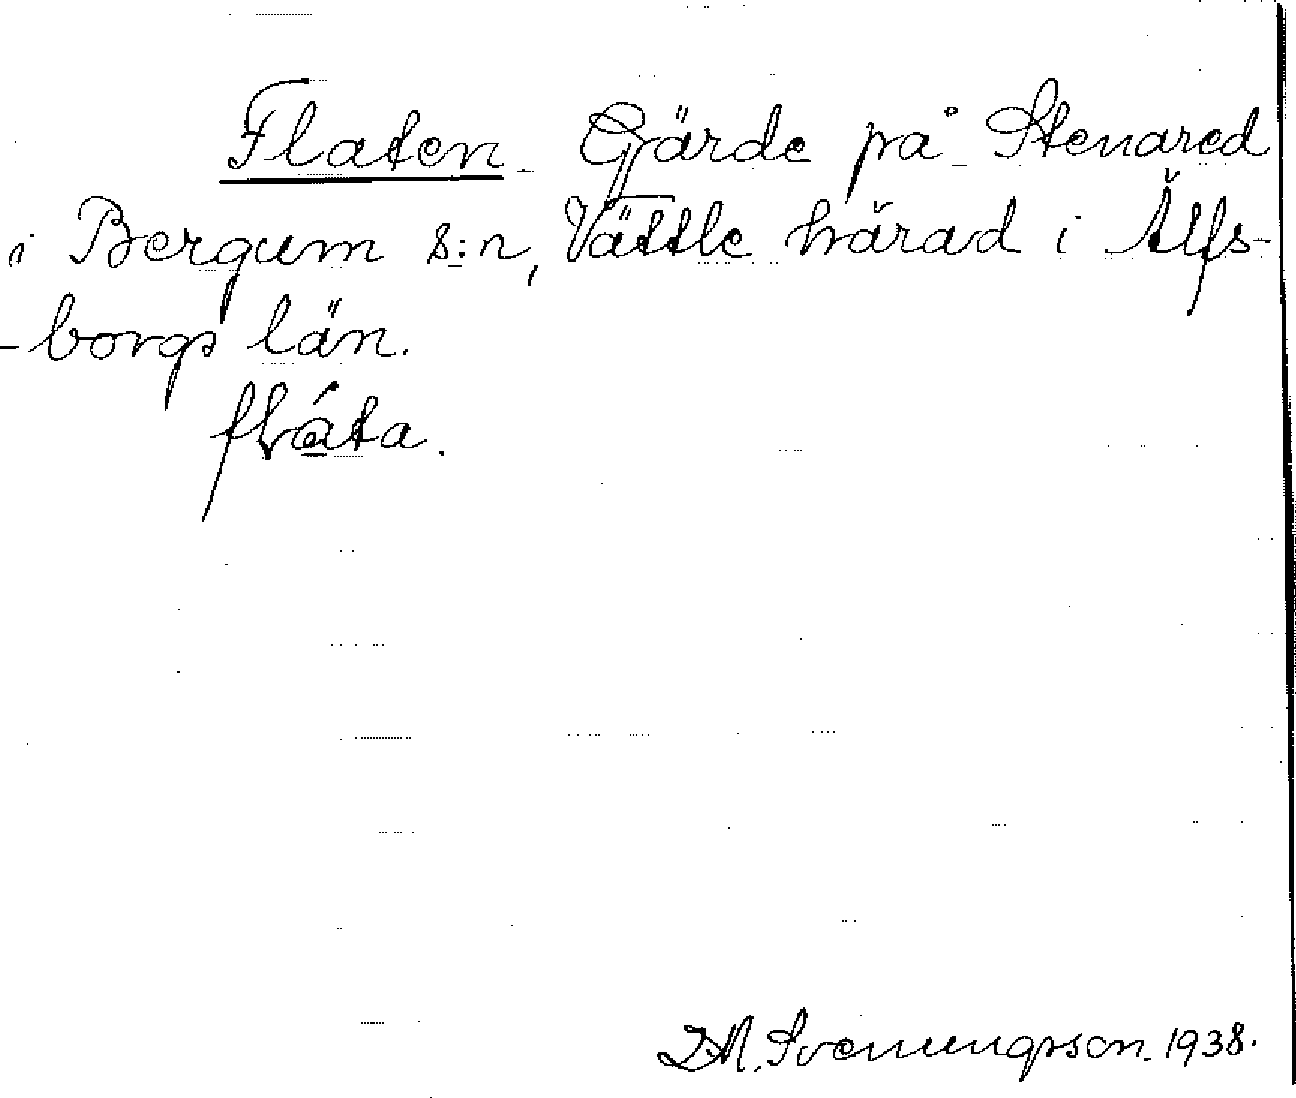 Flaten Gärde på Stenared
i Bergum s:n, Vättle härad i Älfs-
-borgs län.
fláta.
D.M. Svenungsson. 1938.